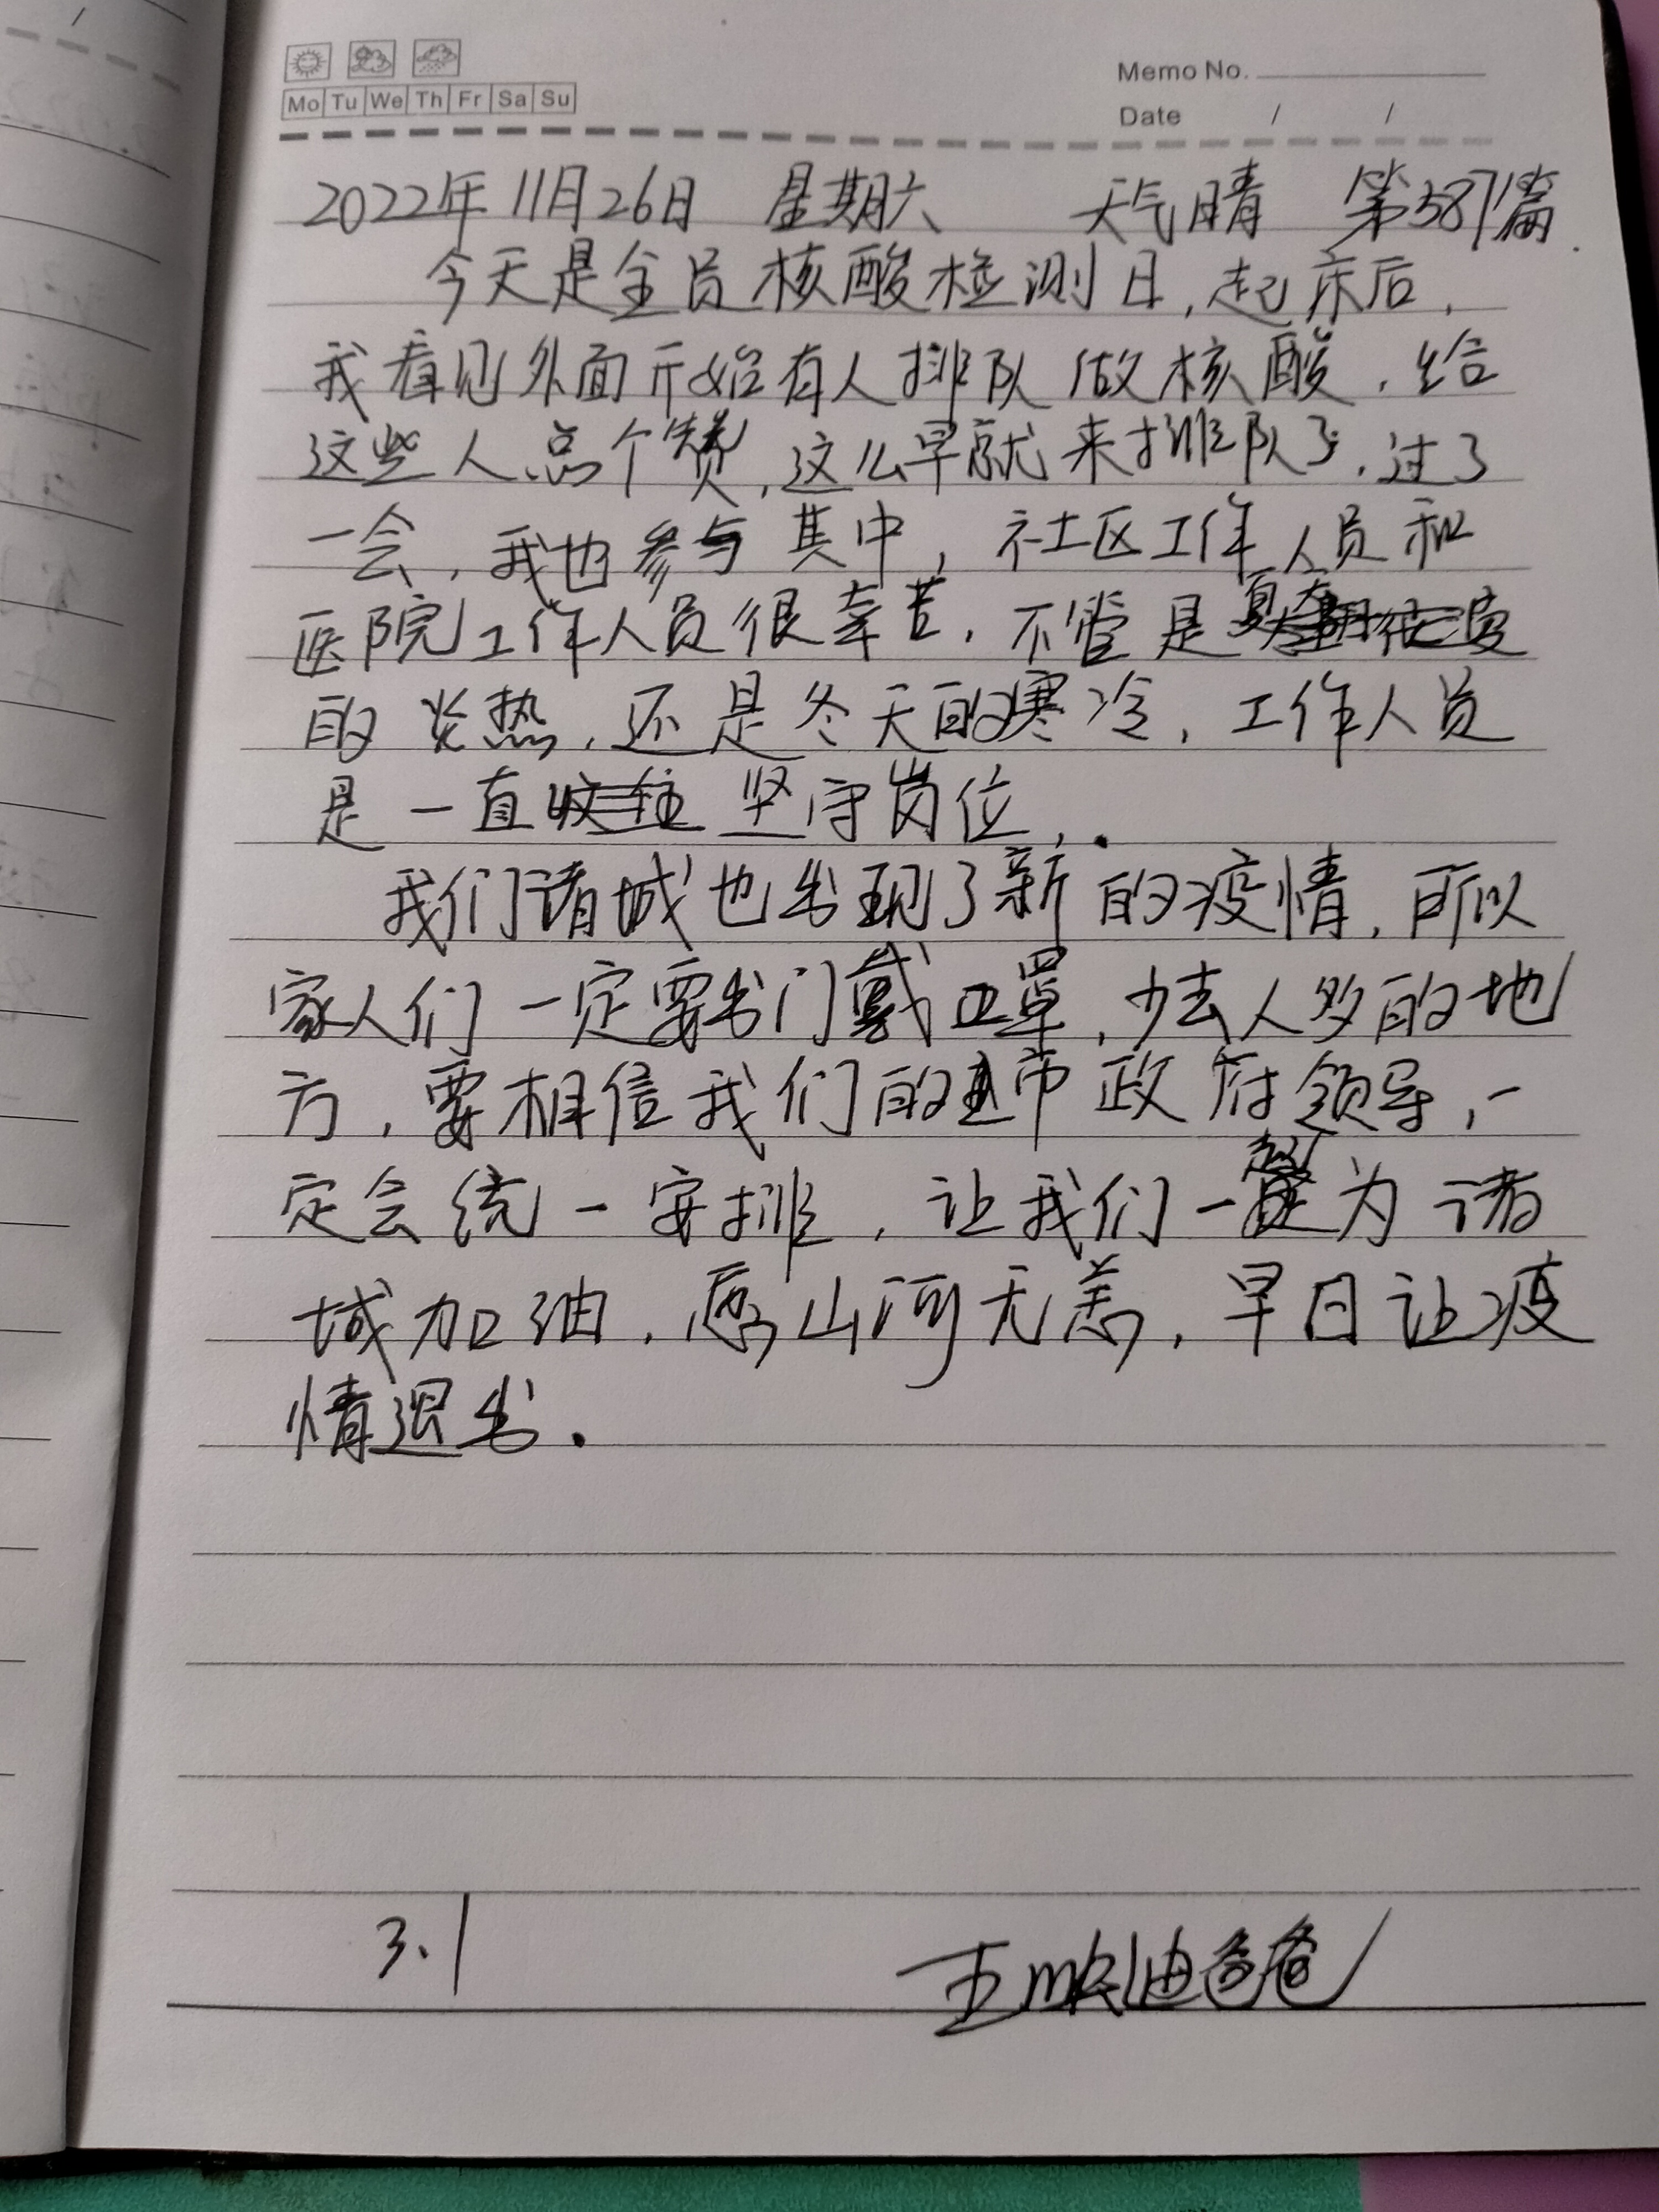 Memo No.
Mo Tu We Th Fr Sa Su
Date / /
2022年11月26日 星期六 天气晴 第587篇
今天是全员核酸检测日,起床后,
我看见外面开始有人排队做核酸,给
这些人点个赞,这么早就来排队了,过了
一会,我也参与其中,社区工作人员和
医院工作人员很辛苦,不管是夏天
的炎热,还是冬天的寒冷,工作人员
是一直坚守岗位,.
我们诸城也出现了新的疫情,所以
家人们一定要出门戴口罩,少去人多的地
方,要相信我们的市政府领导,一
定会统一安排,让我们一起为诸
城加油,愿山河无恙,早日让疫
情退出.
3.1
王 迪爸爸